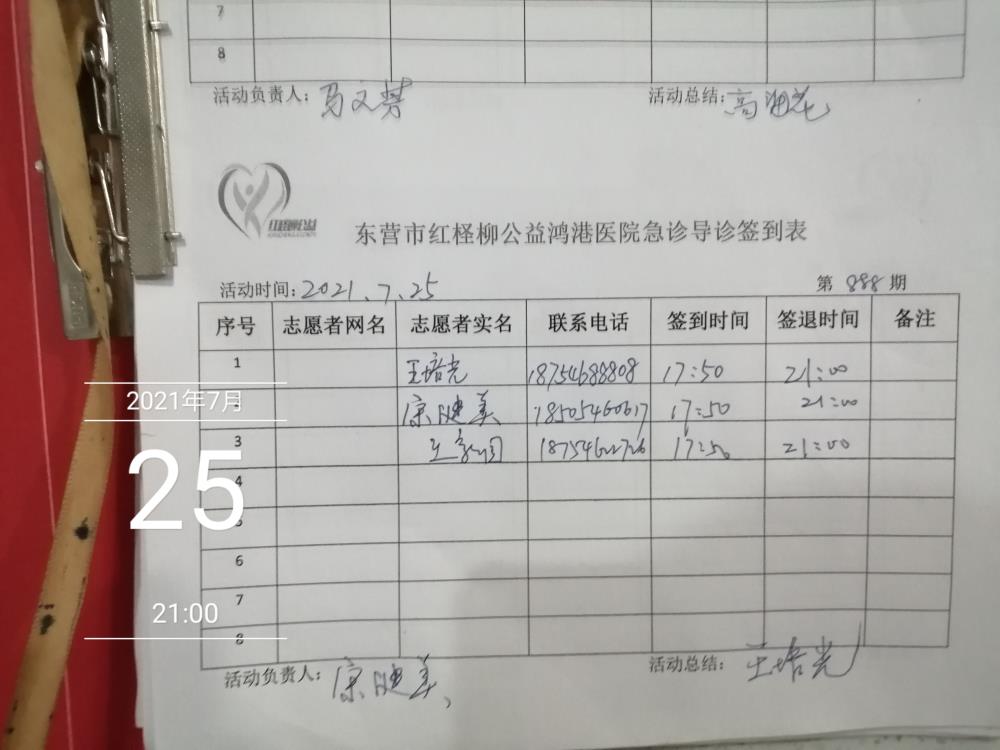 7
8
活动负责人：马文梦 活动总结：高海花
红柽柳公益
东营市红柽柳公益鸿港医院急诊导诊签到表
活动时间：2021.7.25 第 888 期
序号 志愿者网名 志愿者实名 联系电话 签到时间 签退时间 备注
1 王培光 18754688808 17:50 21:00
康健美 18505460617 17:50 21:00
3 17:50 21:00
4
5
6
7
8
2021年7月
25
21:00
活动负责人：康健美、 活动总结：王培光